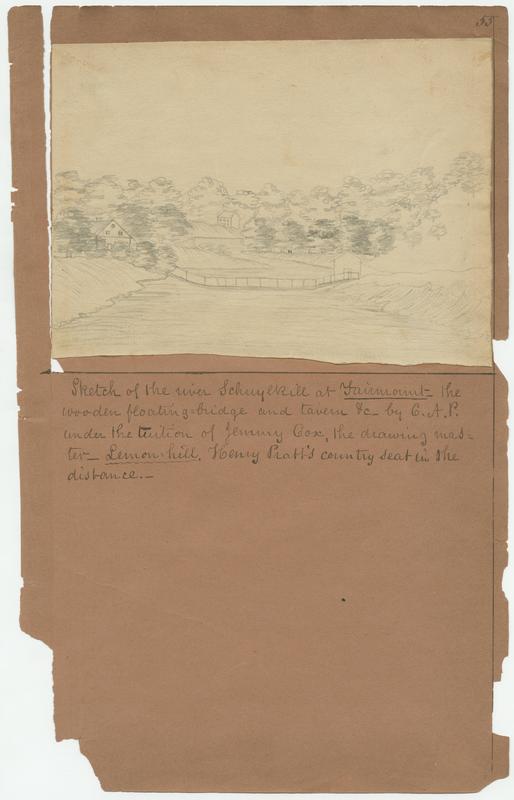 55
Sketch of the river Schuylkill at Fairmount – the
wooden floating-bridge and tavern &c – by C. A. P.
under the tuition of Jemmy Cox, the drawing mas=
ter – Lemon-hill, Henry Pratt's country seat in the
distance. –